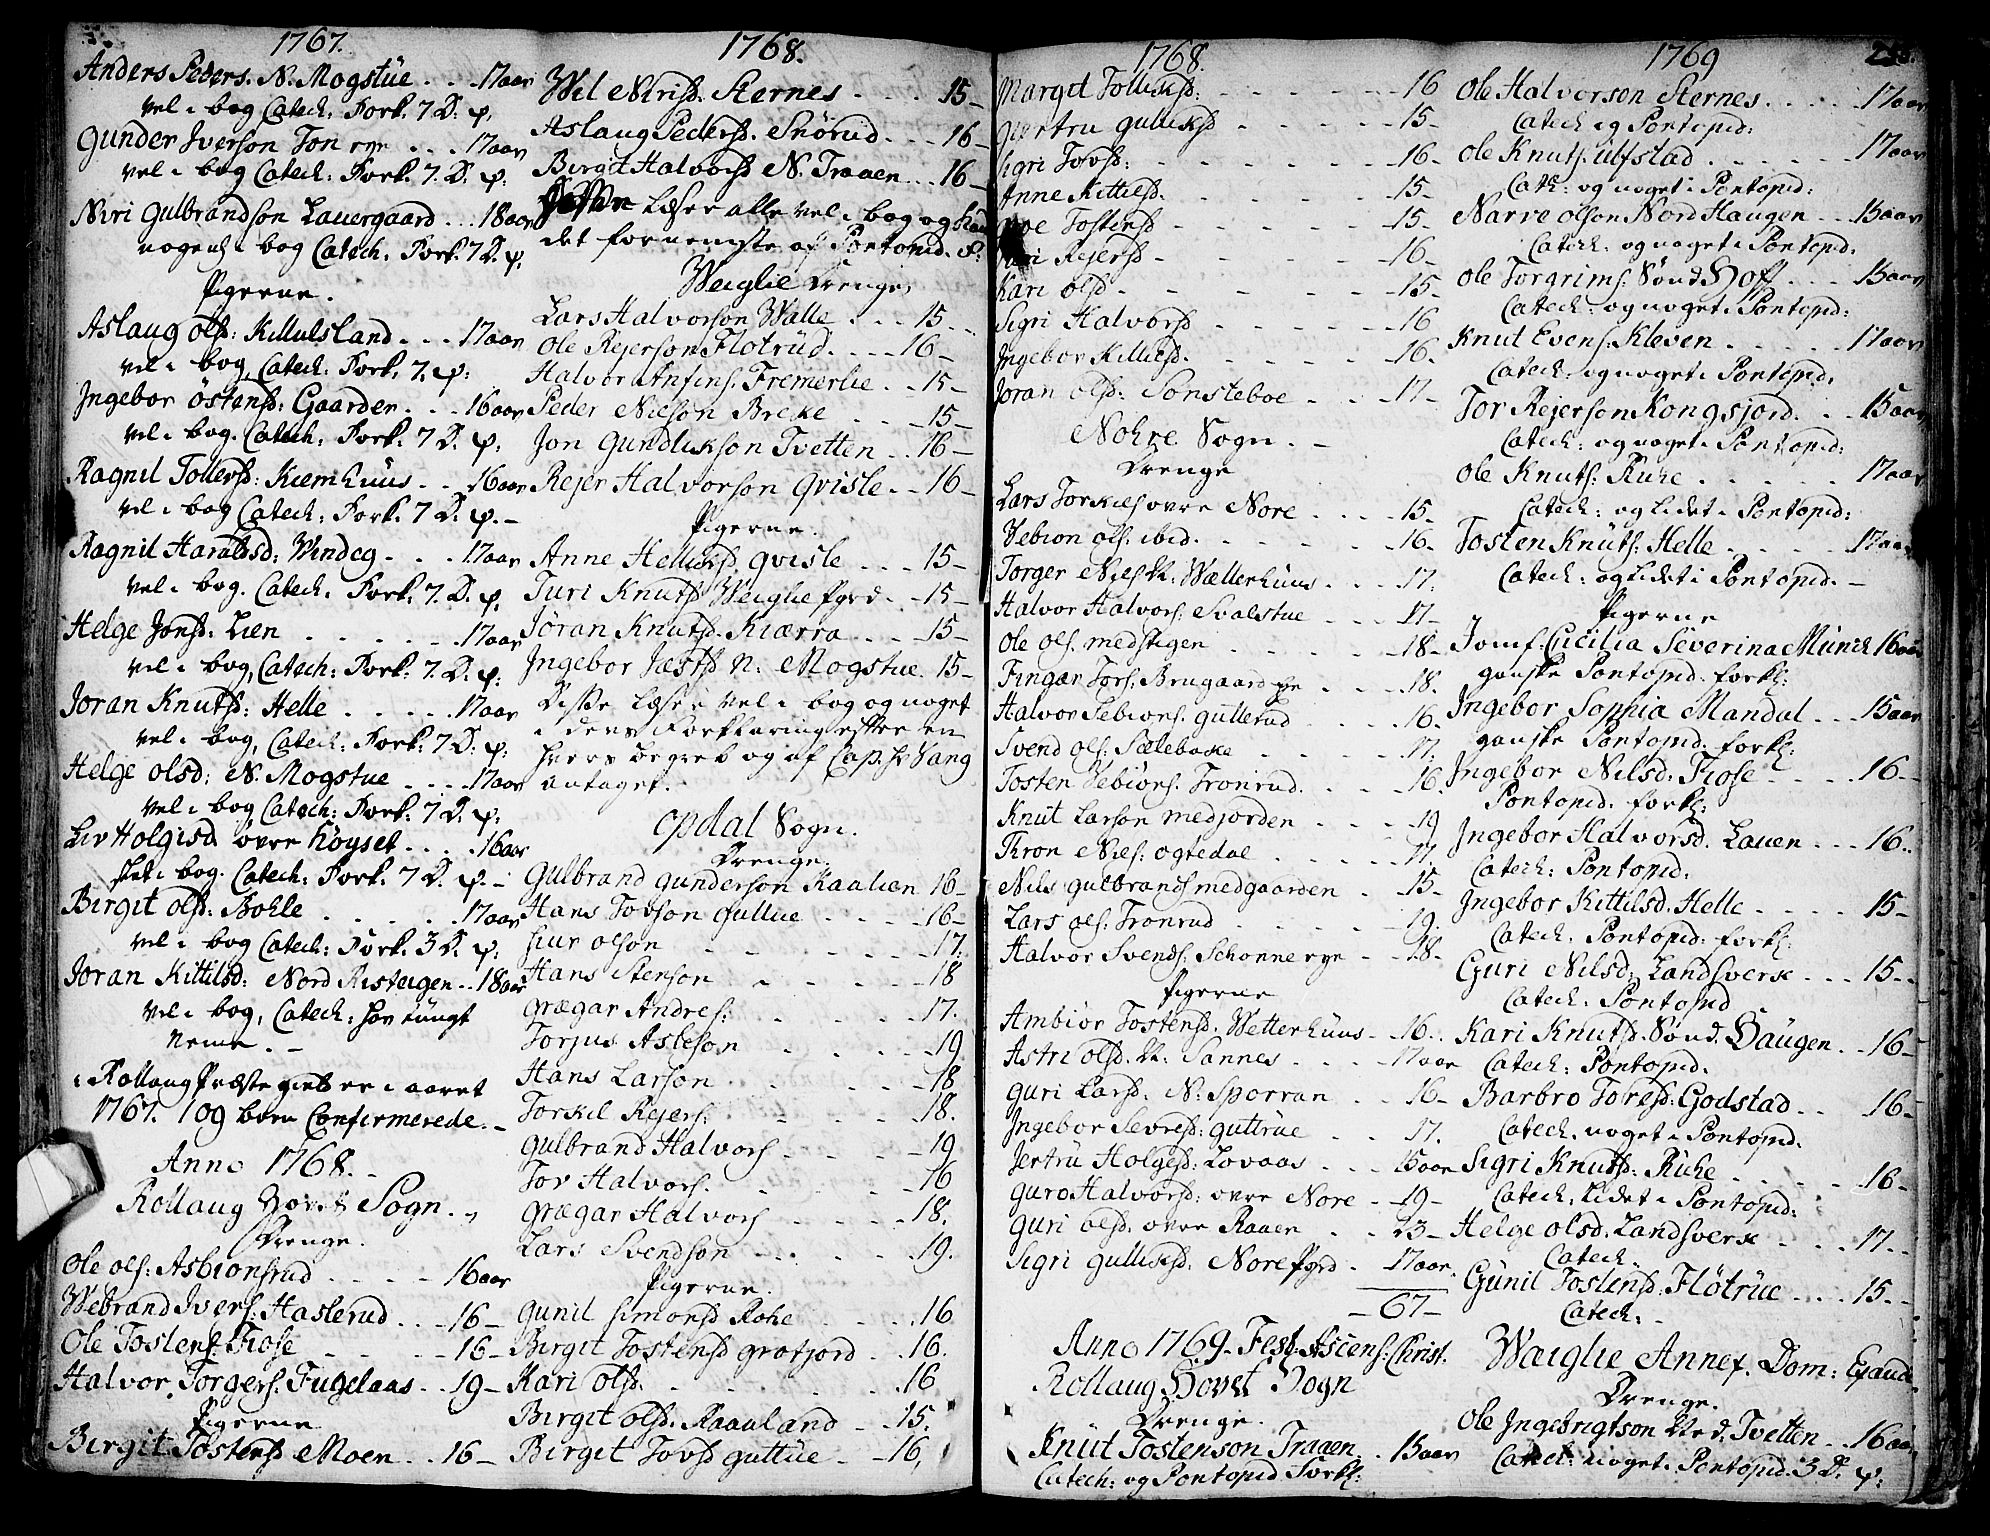 1767.
Anders Peders. N. Mogstüe . . . 17 aar
vel i bog Catech: Fork. 7 D. p.
Gunder Iverson Ton rye . . . 17 aar
vel i bog Catech: Fork. 7. D. p:
Niri Gulbrandson Lauergaard . . 18 aar
nogenl. i bog Catech. Fork. 7 D. p.
Pigerne.
Aslaug Ols: Killulsland . . . 17 aar
vel i bog, Catech: Fork. 7. p:
Ingebor Östensd: Gaarden . . . 16 aar
vel i bog. Catech: Fork: 7 D. p:
Ragnil Tollersd: Kiemhuus . . . 16 aar
vel i bog Catech: Fork: 7 D. p. -
Ragnil Haralsd: Windeg . . . . 17 aar
vel i bog. Catech. Fork. 7. D. p.
Helge Jonsd: Lien . . . . . . 17 aar
vel i bog, Catech: Fork: 7. D. p:
Joran Knutsd: Helle . . . . . 17 aar
vel i bog, Catech: Fork: 7 D: p:
Helge Olsd: N. Mogstue . . . . 17 aar
vel i bog Catech: Fork: 7 D. p:
Liv Holgisd övre Höyset . . . . 16 aar
slet i bog. Catech: Fork. 7 D. p. -
Birgit Olsd: Bohle . . . . . . 17 aar
vel i bog Catech: Fork. 3 D. p:
Joran Kittilsd: Nord Risteigen . . 18 aar
vel i bog, Catech: har tungt
neme. -
i Rollaug Præstegield er i aaret
1767. 109 børn Confirmerede. -
Anno 1768. -
Rollaug Hovet Sogn. -
Drenge.
Ole Ols: Asbionsrud . . . . - 16 aar
Webrand Ivers: Haslerud . . . 16 -
Ole Tostens. Fiose . . . . 16 -
Halvor Torgers. Fugelaas . . 19 -
Pigerne
Birgit Tostensd Moen . . 16 -
1768.
Wel Nirisd: Sternes . . . . 15 -
Aslaug Pedersd. Snörud . . . 16 -
Birgit Halvorsd N. Traaen . . . 16 -
Læser alle vel i bog og
det fornemste af Pontopid. F:
Weiglie Drenge
Lars Halvorson Walle . . . 15 . .
Ole Rejerson Flotrüd . . . . 16 -
Halvor Anfins. Fremerlie . . 15 -
Peder Nielson Breke . . . . 15 -
Jon Gundlikson Tvetten . . 16 -
Rejer Halvorson Qvisle . . 16 -
Pigerne.
Anne Hellised. Qvisle . . . 15 -
Turi Knutsd Weiglie Pgrd . . 15 -
Jöran Knutsd. Kiærra . . . 15 -
Ingebor Jæstsd N: Mogstue. 15 -
Disse læser vel i bog og noget
i deres Forklaring efter en
hvers begreb og af Cap. Hr Vang
antaget.
Opdal Sogn.
Drenge.
Gulbrand Gunderson Kaalien 16 -
Hans Tovson Guttue . . . . 16 -
Siur Olson . . . . 17.
Hans Stenson . . . . . 18
Grægar Andres: . . . . 17.
Torjus Asleson . . . . 19
Hans Larson . . . . . 18
Torkil Rejers: . . . . 18.
Gulbrand Halvors . . . . 19
Tov Halvors. . . . . . 16
Grægar Halvors . . . . 18.
Lars Svendson . . . . 19.
Pigerne.
Gunil Simonsd Rohe . . . . 16
Birgit Tostensd Grotjord . . 16.
Kari Olsd. . . . . . 16
Birgit Olsd. Raauland . . 15.
Birgit Tovsd Guttüe . . 16,
1768.
Margit Tolliksd: . . . . . 16
Giertru Gulliksd . . . . . 15 -
Sigri Tovsd: . . . . . . 16 -
Anne Kittilsd. . . . . . 15 -
Tostensd . . . . . 15 -
Rejersd . . . . . . 16 -
Kari Olsd . . . . . . 15 -
Sigri Halvorsd . . . . . 16
Ingebor Killiesd. . . . . . 16 -
Joran Olsd: Sonsteboe . . . . 17 -
Nohre Sogn. -
Drenge
Lars Torkiels övre Nore . . . . 15 -
Vebion Ols: ibid. . . . . . 16 -
Torger Niels N: Wælterhuus . . . 17.
Halvor Halvors: Svalstue . . . 17 -
Ole Ols. Medstigen . . . . . 18 -
Fingar Tors: Brugaard eye . . . 18.
Halvor Sebions. Gullerud . . . 16 -
Svend Ols: Sælebake . . . . 17.
Tosten Vebiöns. Tronrud. . . . 16
Knut Larson Medjorden . . . . 19
Thron Niels: Ogtedal . . . . . 17.
Nils Gulbrands Medgaarden . . 15 -
Lars Ols. Tronrud . . . . . 19.
Halvor Svends: Schonne eye . . 18 -
Pigerne
Ambior Tostensd. Wetterhuus . 16. .
Astri Olsd. N: Sannes . . . . 17 aar
Guri Larsd. N. Sporran . . . 16 -
Ingebor Sevresd: Guttrüe . . . 17.
Jertru Holgesd. Lovaas . . . 15 aar
Guro Halvorsd: övre Nore . . 19 -
Guri Olsd. övre Raaen . . . 23 -
Sigri Gulliksd. Nore Pgrd . . 17 aar.
- 67 -
Anno 1769. Fest. Ascens: Christ.
Rollaug Hovet Sogn
Drenge.
Knüt Tostenson Traaen . . 15 aar
Catech: og Pontopid Forkl:
1769
Ole Halvorson Sternes . . . . 17 aar
Catech og Pontopid:
Ole Knuts. Ulfstad . . . . . 17 aar
Cath: og noget i Pontopid:
Narve Olson Nord Haugen . . 15 aar
Catech: og noget i Pontopid:
Ole Torgrims: Sönd Hoff . . . 15 aar
Catech: og noget i Pontopid:
Knut Evens: Kleven . . . . . 17 aar
Catech: og noget i Pontopid.
Tor Rejerson Kongsjord . . . 15 aar
Catech: og noget i Pontopid:
Ole Knuts: Ruhe . . . . . . 17 aar
Catech: og lidet i Pontopid:
Tosten Knüts: Helle . . . . . 17 aar
Catech: og lidet i Pontopid. -
Pigerne
Jomf: Cicilia Severina Münch 16 aar
ganske Pontopid. forkl:
Ingebor Sophia Mandal . . 15 aar
ganske Pontopid. forkl:
Ingebor Nilsd. Fiose . . . . 16 -
Pontopid. forkl:
Ingebor Halvorsd. Lauen . . . 16. .
Catech: Pontopid.
Ingebor Kittilsd. Helle . . . . 15 -
Catech. Pontopid: forkl:
Guri Nilsd: Landsverk . . . 15 . .
Catech: Pontopid
Kari Knutsd. Sönd. Haugen . . 16 -
Catech: Pontopid.
Barbro Toresd: Godstad . . . 16 -
Catech. noget i Pontopid.
Sigri Knutsd: Ruhe . . . . . 16 -
Catech: Lidet i Pontopid:
Helge Olsd. Landsverk . . . . 17 . .
Catech.
Gunil Tostensd: Flötrüe . . . . 15 . -
Catech. -
Wæiglie Annex. Dom: Exaud
Drenge.
Ole Ingebrigtson Ned. Tvetten . . 16 aar
Catech: noget i Pontopid. 3 D. p: